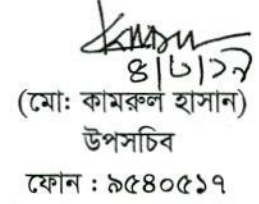 ৪|৩|১৯
(মো: কামরুল হাসান)
উপসচিব
ফোন : ৯৫৪০৫১৭